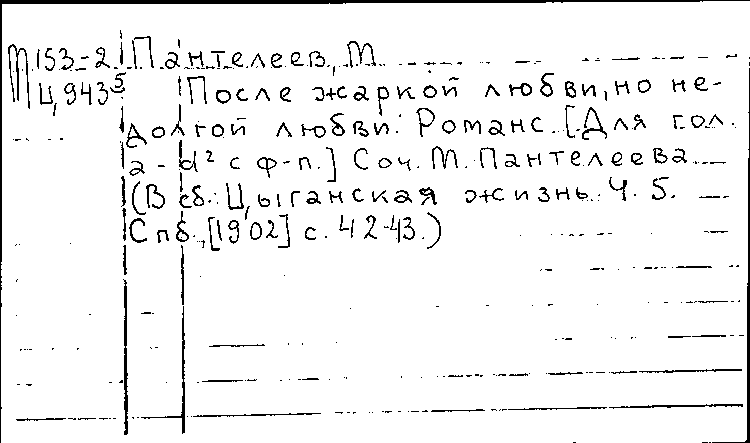 М 153-2 Пантелеев, М.
Ц 943⁵ После жаркой любви, но не-
долгой любви: Романс. [Для гол.
a - d² с ф-п.] Соч. М. Пантелеева
(В сб.: Цыганская жизнь. Ч. 5.
Спб., [1902] с. 42-43.)